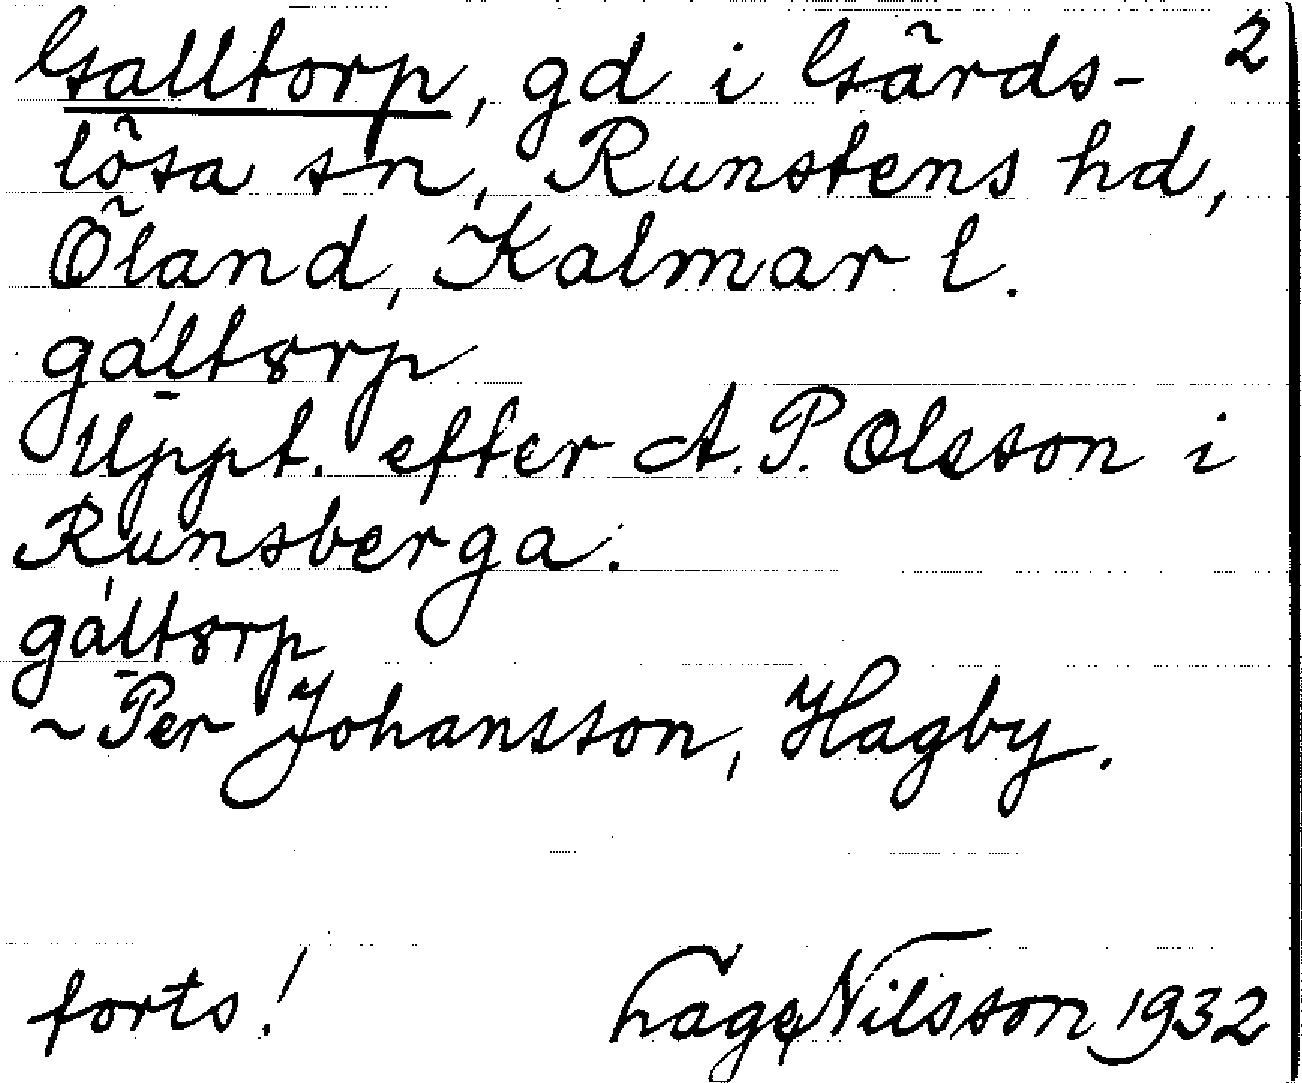 Galltorp, gd i Gärds- 2
lösa sn, Runstens hd,
Öland, Kalmar l.
gáltȣrp
Uppt. efter A. P. Olsson i
Runsberga.
gáltȣrp
~ Per Johansson, Hagby.
forts! Hage Nilsson 1932